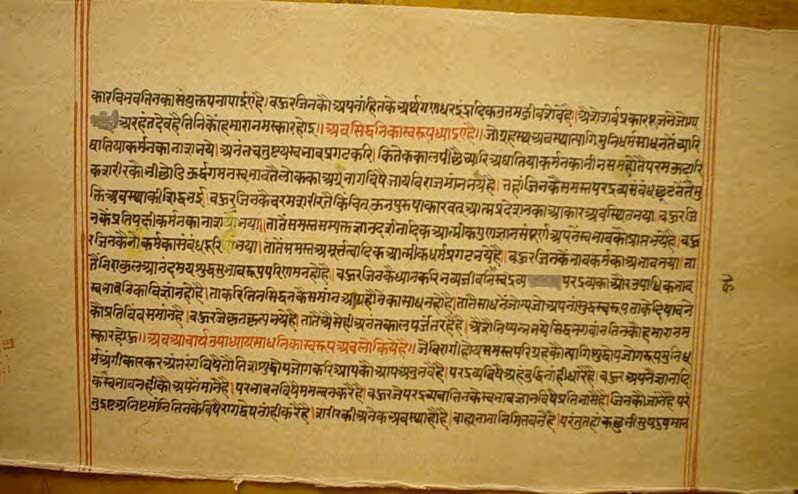 कारविनवतिनका संयुक्तपना पाईएहै। बऊरि जिनकौ अपनां हितके अर्थ गणधर इंद्रादिक उत्तम जीव सेवैहै। अैसे सर्व प्रकार पूजने जोग्य
अरहंत देवहै तिनिकों हमारा नमस्कार होऊ॥ अब सिद्धनिका स्वरूप ध्याइएहै॥ जे गृहस्थ अवस्था त्यागि मुनिधर्म साधनतें च्यारि
घातिया कर्मनका नाश भये। अनंत चतुष्टय स्वभाव प्रगट करि। कितेक काल पीछै च्यारि अघातिया कर्मनका भी भसम होतें परम ऊदारि
क शरीरकौं भी छोडि ऊर्द्धगमन स्वभावतै लोकका अग्र भाग विषै जाय विराजमान भयेहै। तहां जिनकै समस्त परद्रव्य संबंध छूटनेतै मु
क्ति अवस्थाकी सिद्धि भई। बऊरि जिनकै चरम शरीरतै किंचित् ऊन पुरुषाकारवत् आत्मप्रदेशनका आकार अवस्थित भया। बऊरि जि
नकै प्रतिपक्षी कर्मनका नाश भया। तातै समस्त सम्यक्त ज्ञान दर्शनादिक आत्मीक गुण ज्ञान संपूर्ण अपने स्वभावकौ प्राप्त भयेहै। बऊ
रि जिनकै नोकर्मका संबंध दूरि भया। तातै समस्त अमूर्तत्वादिक आत्मीक धर्म प्रगट भयेहै। बऊरि जिनकै भावकर्मका अभाव भया। ता
तै निराकुल आनंदमय शुद्ध स्वभावरूप परिणमन होहै। बऊरि जिनकै ध्यान करि भव्य जीवनिकै स्वद्रव्य परद्रव्यका और उपाधिक भाव
स्वभावनिका विज्ञान होहै। ताकरि तिन सिद्धनकै समान आप होनेका साधन होहै। तातै साधने जोग्य जो अपना शुद्ध स्वरूप ताके दिखावने
कौ प्रतिबिंब समान है। बऊरि जे कृतकृत्य भयेहै। तातै अैसेही अनंतकाल पर्जंत रहैहै। अैसे निष्पन्न भये सिद्ध भगवान तिनकौ हमारा नम
स्कार होऊ॥ अब आचार्य उपाध्याय साधनिका स्वरूप अवलोकियेहै॥ जे विरागी होय समस्त परिग्रहकौ त्यागि शुद्धोपजोगरूप मुनिध
र्म अंगीकार कर अंतरंग विषै तौ तिस शुद्धोपजोग करि आपकौ आप अनुभवैहै। परद्रव्य विषै अहंबुद्धि नांही धारैहै। बऊरि अपने ज्ञानादि
क स्वभावनहीकौ अपने मानैहै। परभावन विषै ममत्व न करैहै। बऊरि जे परद्रव्य वा तिनके स्वभाव ज्ञान विषै प्रतिभासैहै। तिनकौ जानैहै परं
तु इष्ट अनिष्ट मांनि तिनके विषै राग द्वेष नांही करैहै। शरीरकी अनेक अवस्था होहै। बाह्य नाना निमित्त बनैहै। परंतु तहां कछु भी सुष दुष मान